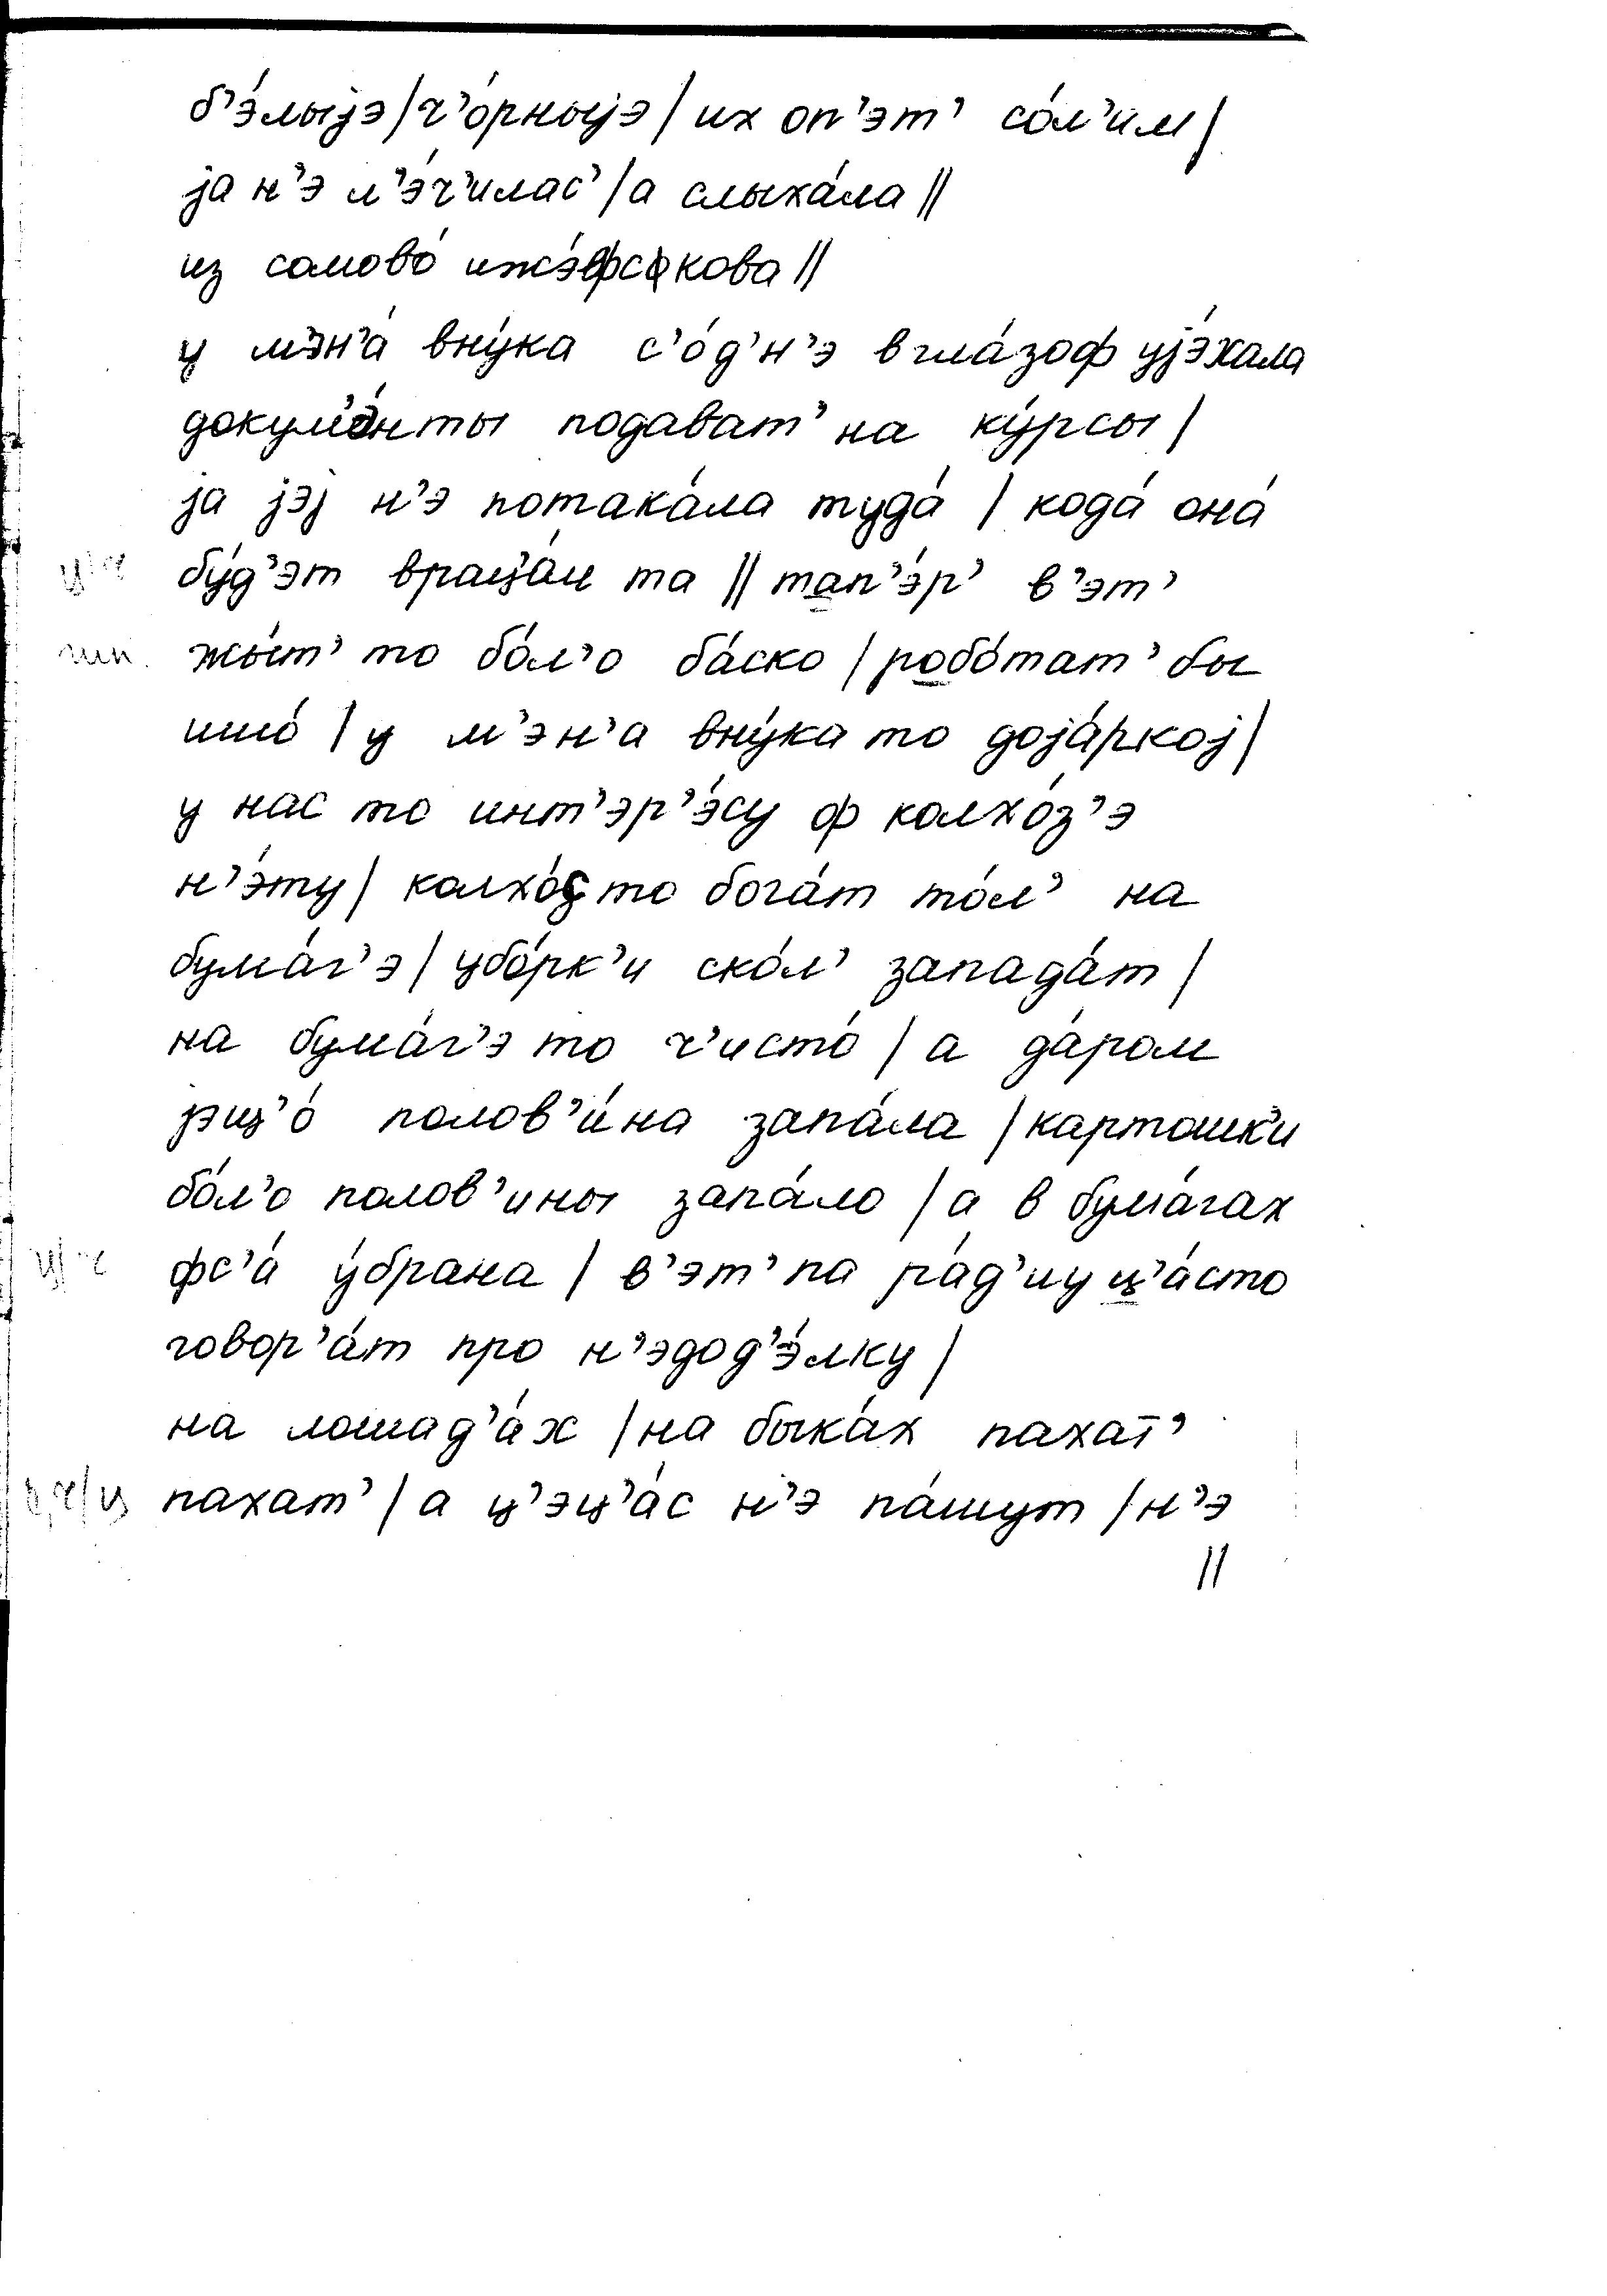 б’э́лыjэ | ч’о́рныjэ | их оп’эт’ со́л’им |
ja н’э л’э́ч’илас’ | а слыха́ла ||
из самово́ ижэ́фскова ||
у м’эн’а́ вну́ка с’о́д’н’э в гла́зоф уjэ́хала
докум’э́нты подават’ на ку́рсы |
ja jэj н’э потака́ла туда́ | кода́ она́
бу́д’эт врац’о́м та || тап’э́р’ в’эт’
жы́т’ то бо́л’о ба́ско | робо́тат’ бы
ишо́ | у м’эн’а вну́ка то доjа́ркоj |
у нас то инт’эр’э́су ф колхо́з’э
н’э́ту | колхо́с то бога́т то́л’ на
бума́г’э | убо́рк’и ско́л’ запада́т |
на бума́г’э то ч’исто́ | а да́ром
jэщ’о́ полов’и́на запа́ла | картошк’и
бо́л’о полов’ины запа́ло | а в бума́гах
фс’а́ у́брана | в’эт’ па ра́д’иу ц’а́сто
говор’а́т про н’эдод’э́лку |
на лошад’а́х | на быка́х пахат’
пахат’ | а ц’эц’а́с н’э па́шут | н’э
||